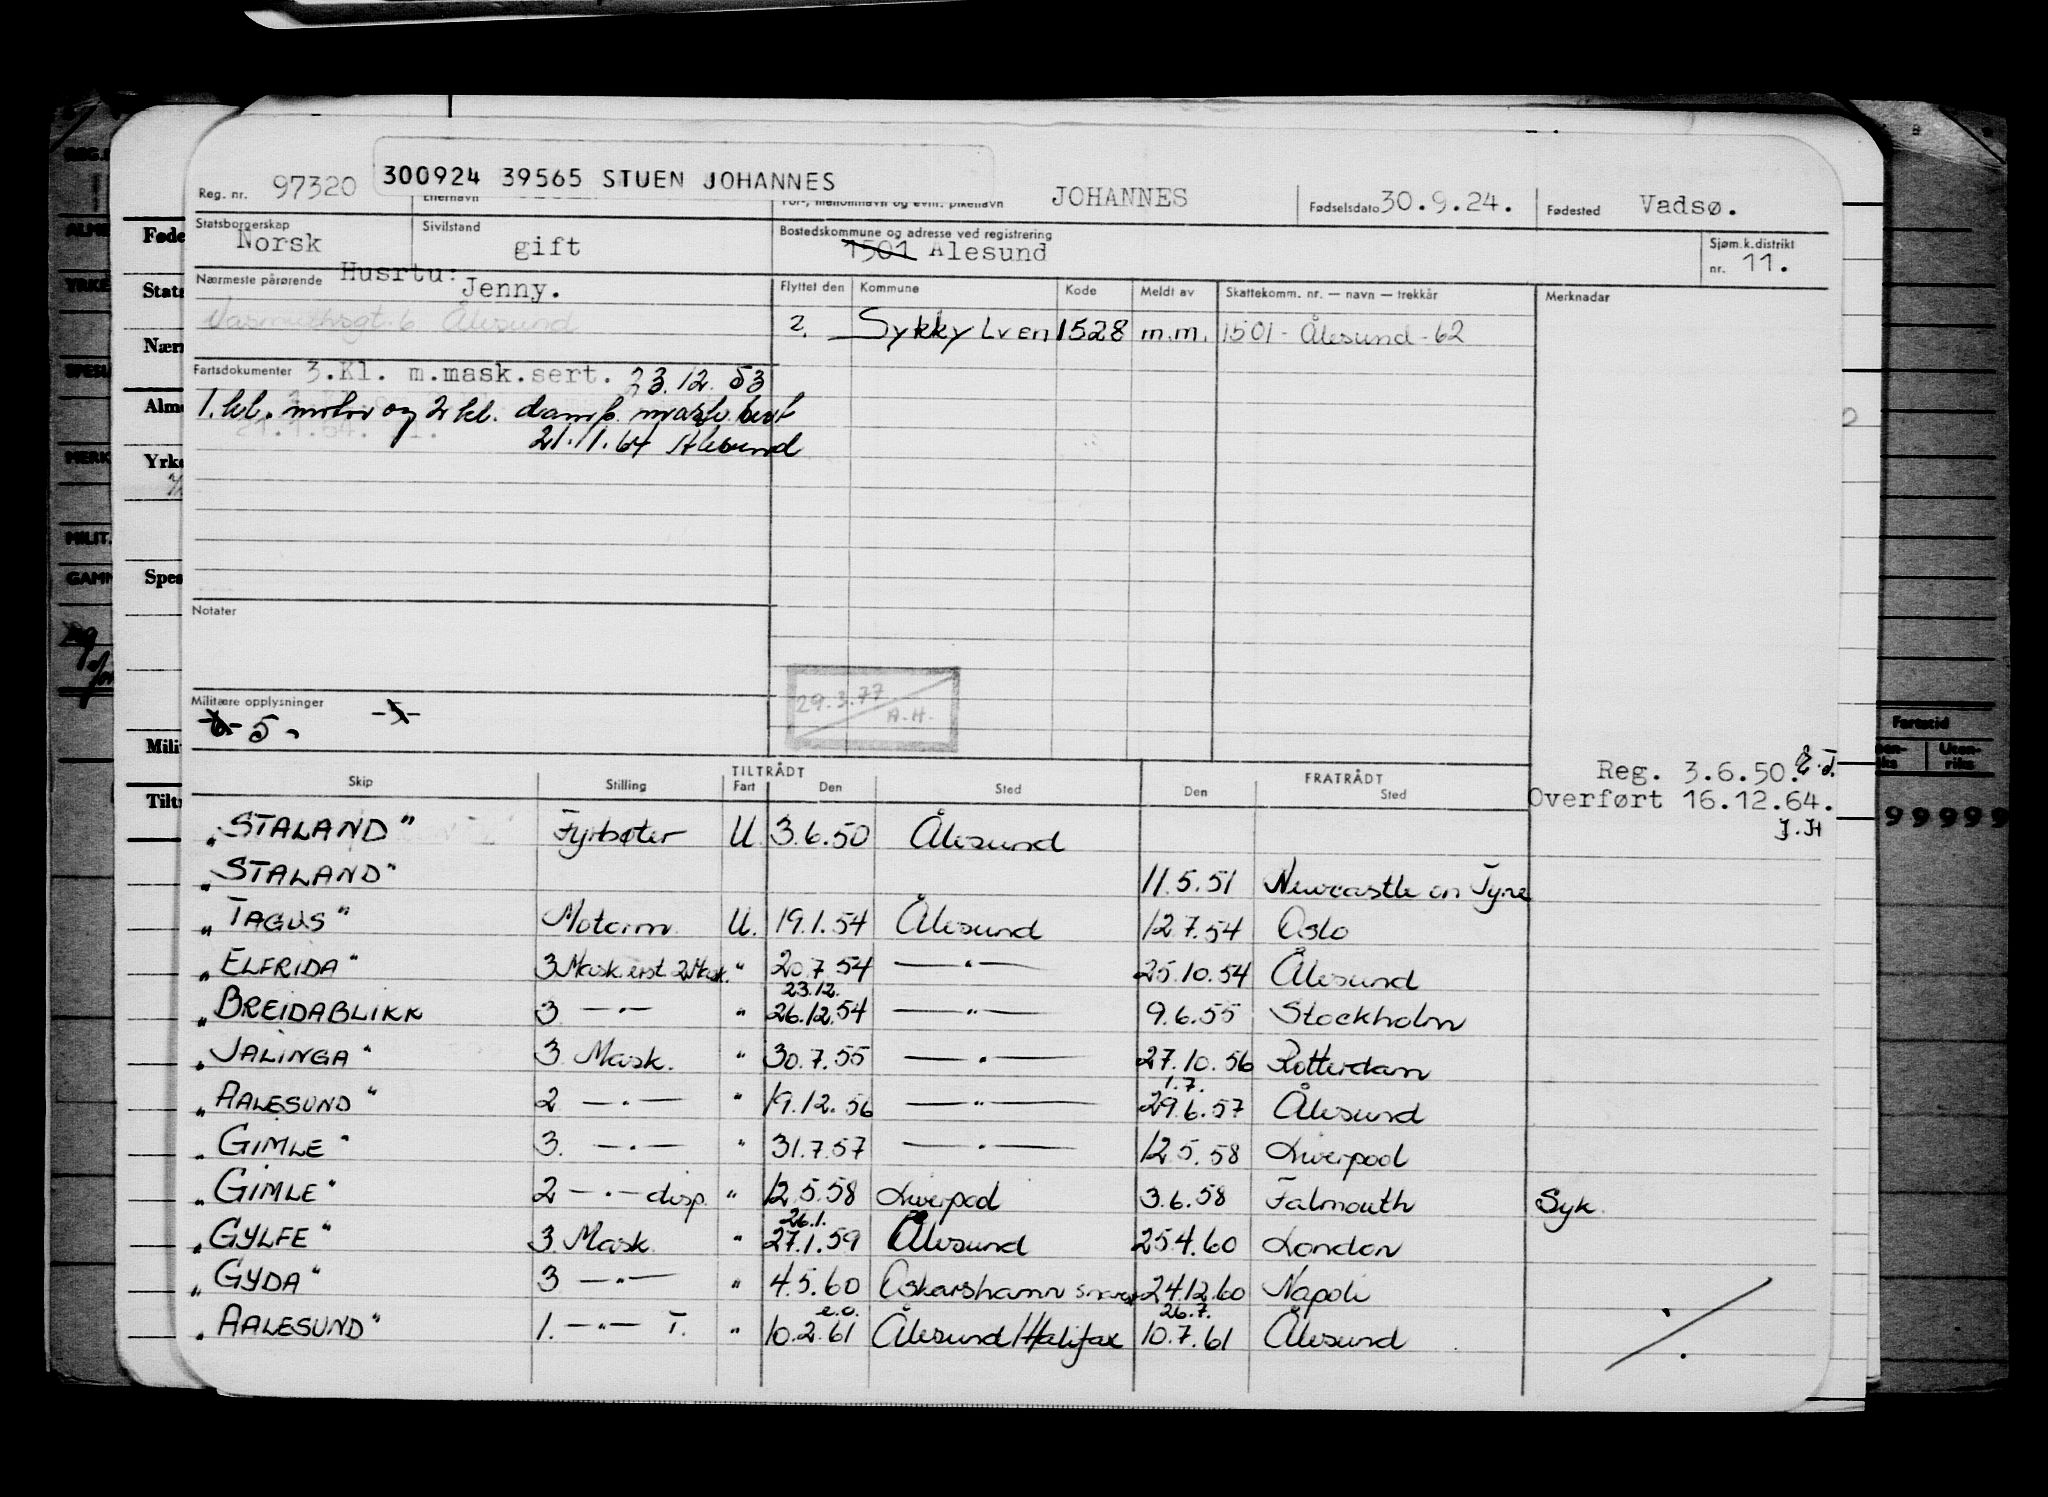 300924 39565 STUEN JOHANNES
Reg. nr. 97320 JOHANNES Fødselsdato 30.9.24. Fødested Vadsø.
Statsborgerskap Norsk Sivilstand gift Bostedskommune og adresse ved registrering 1501 Alesund Sjøm.k.distrikt nr. 11.
Nærmeste pårørende Husrtu: Jenny.
Flyttet den Kommune Kode Meldt av Skattekomm. nr. — navn — trekkår Merknadar
2. Sykkylven 1528 m.m. 1501 - Ålesund - 62
Fartsdokumenter 3.Kl. m.mask.sert. 23.12.53
1. kl. motor og 2 kl. damp. mask.
21.11.64 Alesund
Notater
29.3.77
A.H.
Militære opplysninger
5
Reg. 3.6.50.
Overført 16.12.64.
J.H
Skip Stilling TILTRÅDT Fart Den Sted FRATRÅDT Den Sted
„STALAND" Fyrbøter U. 3.6.50 Ålesund
„STALAND" 11.5.51 Newcastle on Tyne
„TAGUS" Motorm. U. 19.1.54 Ålesund 12.7.54 Oslo
„ELFRIDA" 3 Mask. erst. 2 Mask. " 20.7.54 — " — 25.10.54 Ålesund
23.12.
„BREIDABLIKK 3 — " — " 26.12.54 — " — 9.6.55 Stockholm
„JALINGA" 3. Mask. " 30.7.55 — " — 27.10.56 Rotterdam
1.7.
„AALESUND" 2 — " — " 19.12.56 — " — 29.6.57 Ålesund
„GIMLE" 3. — " — " 31.7.57 — " — 12.5.58 Liverpool
„GIMLE" 2 — " — disp. " 12.5.58 Liverpool 3.6.58 Falmouth Syk.
26.1.
„GYLFE" 3 Mask. " 27.1.59 Ålesund 25.4.60 London
„GYDA" 3 — " — " 4.5.60 Oskarshamn 24.12.60 Napoli
e.o. 26.7.
„AALESUND" 1. — " — T. " 10.2.61 Ålesund/Halifax 10.7.61 Ålesund
Føde
Stats
Nær
Alm
Yrke
Spes
Mili
Tilt
Fartstid
99999